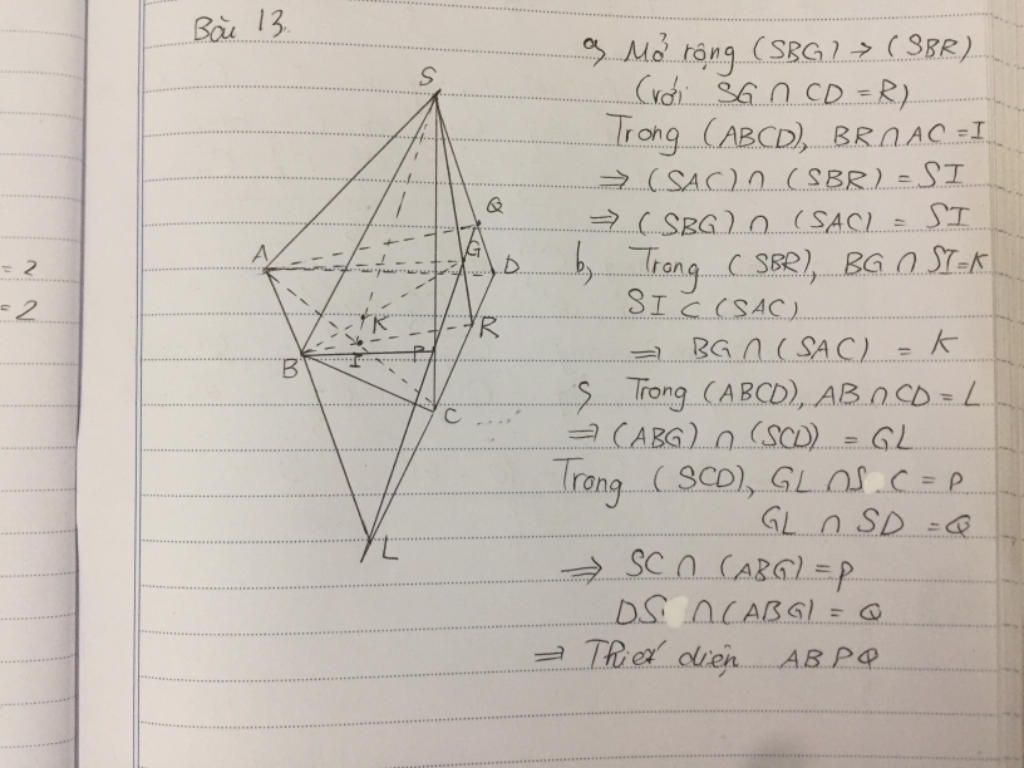 Bài 13.
= 2
= 2
S
Q
A
G
D
K
R
B
I
P
C
L
a, Mở rộng (SBG) → (SBR)
(với SG ∩ CD = R)
Trong (ABCD), BR ∩ AC = I
⇒ (SAC) ∩ (SBR) = SI
⇒ (SBG) ∩ (SAC) = SI
b, Trong (SBR), BG ∩ SI = K
SI ⊂ (SAC)
⇒ BG ∩ (SAC) = K
c, Trong (ABCD), AB ∩ CD = L
⇒ (ABG) ∩ (SCD) = GL
Trong (SCD), GL ∩ SC = P
GL ∩ SD = Q
⇒ SC ∩ (ABG) = P
DS ∩ (ABG) = Q
⇒ Thiết diện ABPQ